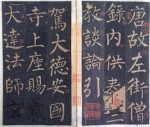 唐故左街僧
錄內供奉三
教談論引
駕大德安國
寺上座賜
大達法師